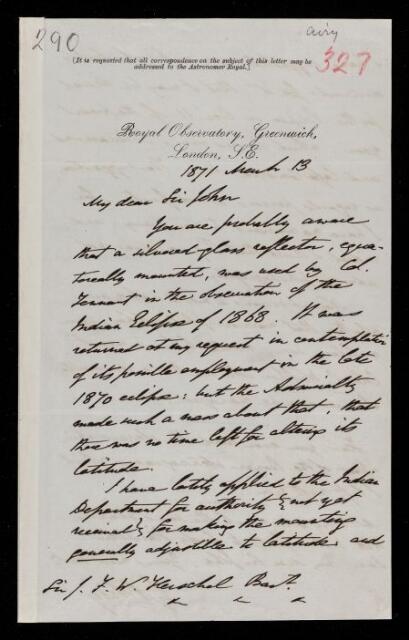 290
airy
327
[It is requested that all correspondence on the subject of this letter may be
addressed to the Astronomer Royal.]
Royal Observatory, Greenwich,
London, S.E.
1871 March 13
My dear Sir John
You are probably aware
that a silvered-glass reflector, equa-
toreally mounted, was used by Col.
Tennant in the observation of the
Indian Eclipse of 1868. It was
returned at my request in contemplation
of its possible employment in the late
1870 eclipse: but the Admiralty
made such a mess about that, that
there was no time left for altering its
latitude.
I have lately applied to the Indian
Department for authority (not yet
received) for making the mounting
generally adjustible to latitude: and
Sir J. F. W. Herschel Bart.